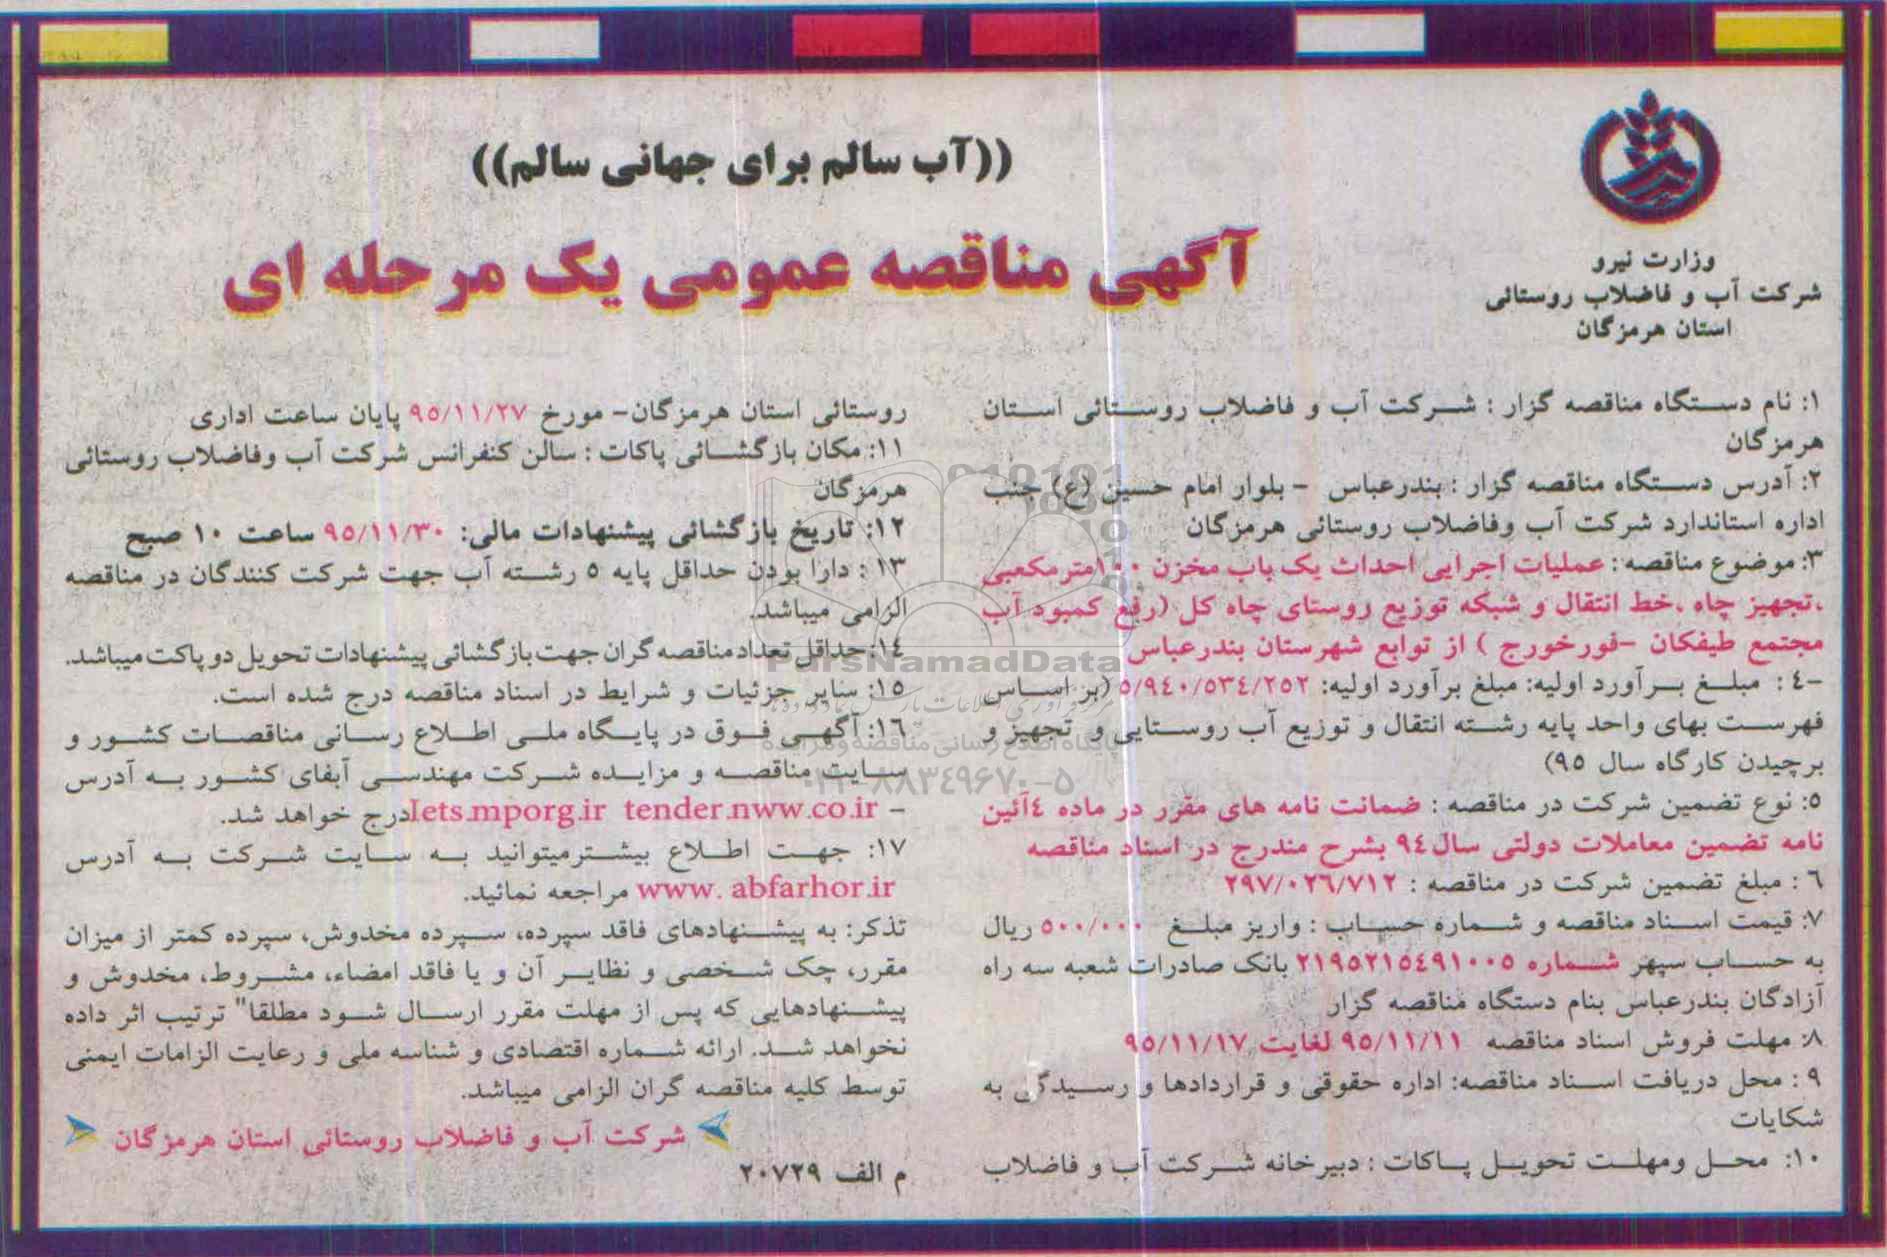 ((آب سالم برای جهانی سالم))
آگهی مناقصه عمومی یک مرحله ای
وزارت نیرو
شرکت آب و فاضلاب روستائی
استان هرمزگان
۱: نام دستگاه مناقصه گزار : شرکت آب و فاضلاب روستائی استان
هرمزگان
۲: آدرس دستگاه مناقصه گزار : بندرعباس - بلوار امام حسین (ع) جنب
اداره استاندارد شرکت آب وفاضلاب روستائی هرمزگان
۳: موضوع مناقصه : عملیات اجرایی احداث یک باب مخزن ۱۰۰مترمکعبی
،تجهیز چاه ،خط انتقال و شبکه توزیع روستای چاه کل (رفع کمبود آب
مجتمع طیفکان -فورخورج ) از توابع شهرستان بندرعباس
-۴ : مبلغ برآورد اولیه: مبلغ برآورد اولیه: ۵/۹۴۰/۵۳۴/۲۵۲ (بر اساس
فهرست بهای واحد پایه رشته انتقال و توزیع آب روستایی و تجهیز و
برچیدن کارگاه سال ۹۵)
۵: نوع تضمین شرکت در مناقصه : ضمانت نامه های مقرر در ماده ۴آئین
نامه تضمین معاملات دولتی سال۹۴ بشرح مندرج در اسناد مناقصه
۶ : مبلغ تضمین شرکت در مناقصه : ۲۹۷/۰۲۶/۷۱۲
۷: قیمت اسناد مناقصه و شماره حساب : واریز مبلغ ۵۰۰/۰۰۰ ریال
به حساب سپهر شماره ۲۱۹۵۲۱۵۴۹۱۰۰۵ بانک صادرات شعبه سه راه
آزادگان بندرعباس بنام دستگاه مناقصه گزار
۸: مهلت فروش اسناد مناقصه ۹۵/۱۱/۱۱ لغایت ۹۵/۱۱/۱۷
۹ : محل دریافت اسناد مناقصه: اداره حقوقی و قراردادها و رسیدگی به
شکایات
۱۰: محل ومهلت تحویل پاکات : دبیرخانه شرکت آب و فاضلاب
روستائی استان هرمزگان- مورخ ۹۵/۱۱/۲۷ پایان ساعت اداری
۱۱: مکان بازگشائی پاکات : سالن کنفرانس شرکت آب وفاضلاب روستائی
هرمزگان
۱۲: تاریخ بازگشائی پیشنهادات مالی: ۹۵/۱۱/۳۰ ساعت ۱۰ صبح
۱۳ : دارا بودن حداقل پایه ۵ رشته آب جهت شرکت کنندگان در مناقصه
الزامی میباشد.
۱۴: حداقل تعداد مناقصه گران جهت بازگشائی پیشنهادات تحویل دو پاکت میباشد.
۱۵: سایر جزئیات و شرایط در اسناد مناقصه درج شده است.
۱۶: آگهی فوق در پایگاه ملی اطلاع رسانی مناقصات کشور و
سایت مناقصه و مزایده شرکت مهندسی آبفای کشور به آدرس
- Iets.mporg.ir tender.nww.co.ir درج خواهد شد.
۱۷: جهت اطلاع بیشترمیتوانید به سایت شرکت به آدرس
www. abfarhor.ir مراجعه نمائید.
تذکر: به پیشنهادهای فاقد سپرده، سپرده مخدوش، سپرده کمتر از میزان
مقرر، چک شخصی و نظایر آن و یا فاقد امضاء، مشروط، مخدوش و
پیشنهادهایی که پس از مهلت مقرر ارسال شود مطلقا" ترتیب اثر داده
نخواهد شد. ارائه شماره اقتصادی و شناسه ملی و رعایت الزامات ایمنی
توسط کلیه مناقصه گران الزامی میباشد.
شرکت آب و فاضلاب روستائی استان هرمزگان
م الف ۲۰۷۲۹
ParsNamadData
پایگاه اطلاع رسانی مناقصه و مزایده
۰۲۱-۸۸۳۴۹۶۷۰-۵